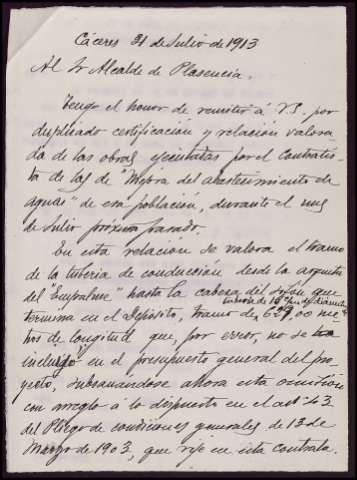 Cáceres 31 de Julio de 1913
Al Sr Alcalde de Plasencia.
Tengo el honor de remitir á V.S. por
duplicado certificación y relación valora
da de las obras ejecutadas por el Contratis
ta de las de "Mejora del abastecimiento de
aguas" de esa población, durante el mes
de Julio próximo pasado.
En esta relación se valora el tramo
de la tubería de conducción desde la arqueta
del "Empalme" hasta la cabeza del sifón que
tubería de 16 de diámetro
termina en el Depósito, tramo de 659,00 me
tros de longitud que, por error, no se
incluyó en el presupuesto general del pro
yecto, subsanandose ahora esta omisión
con arreglo á lo dispuesto en el artº 43
del Pliego de condiciones generales de 13 de
Marzo de 1903, que rije en esta contrata.